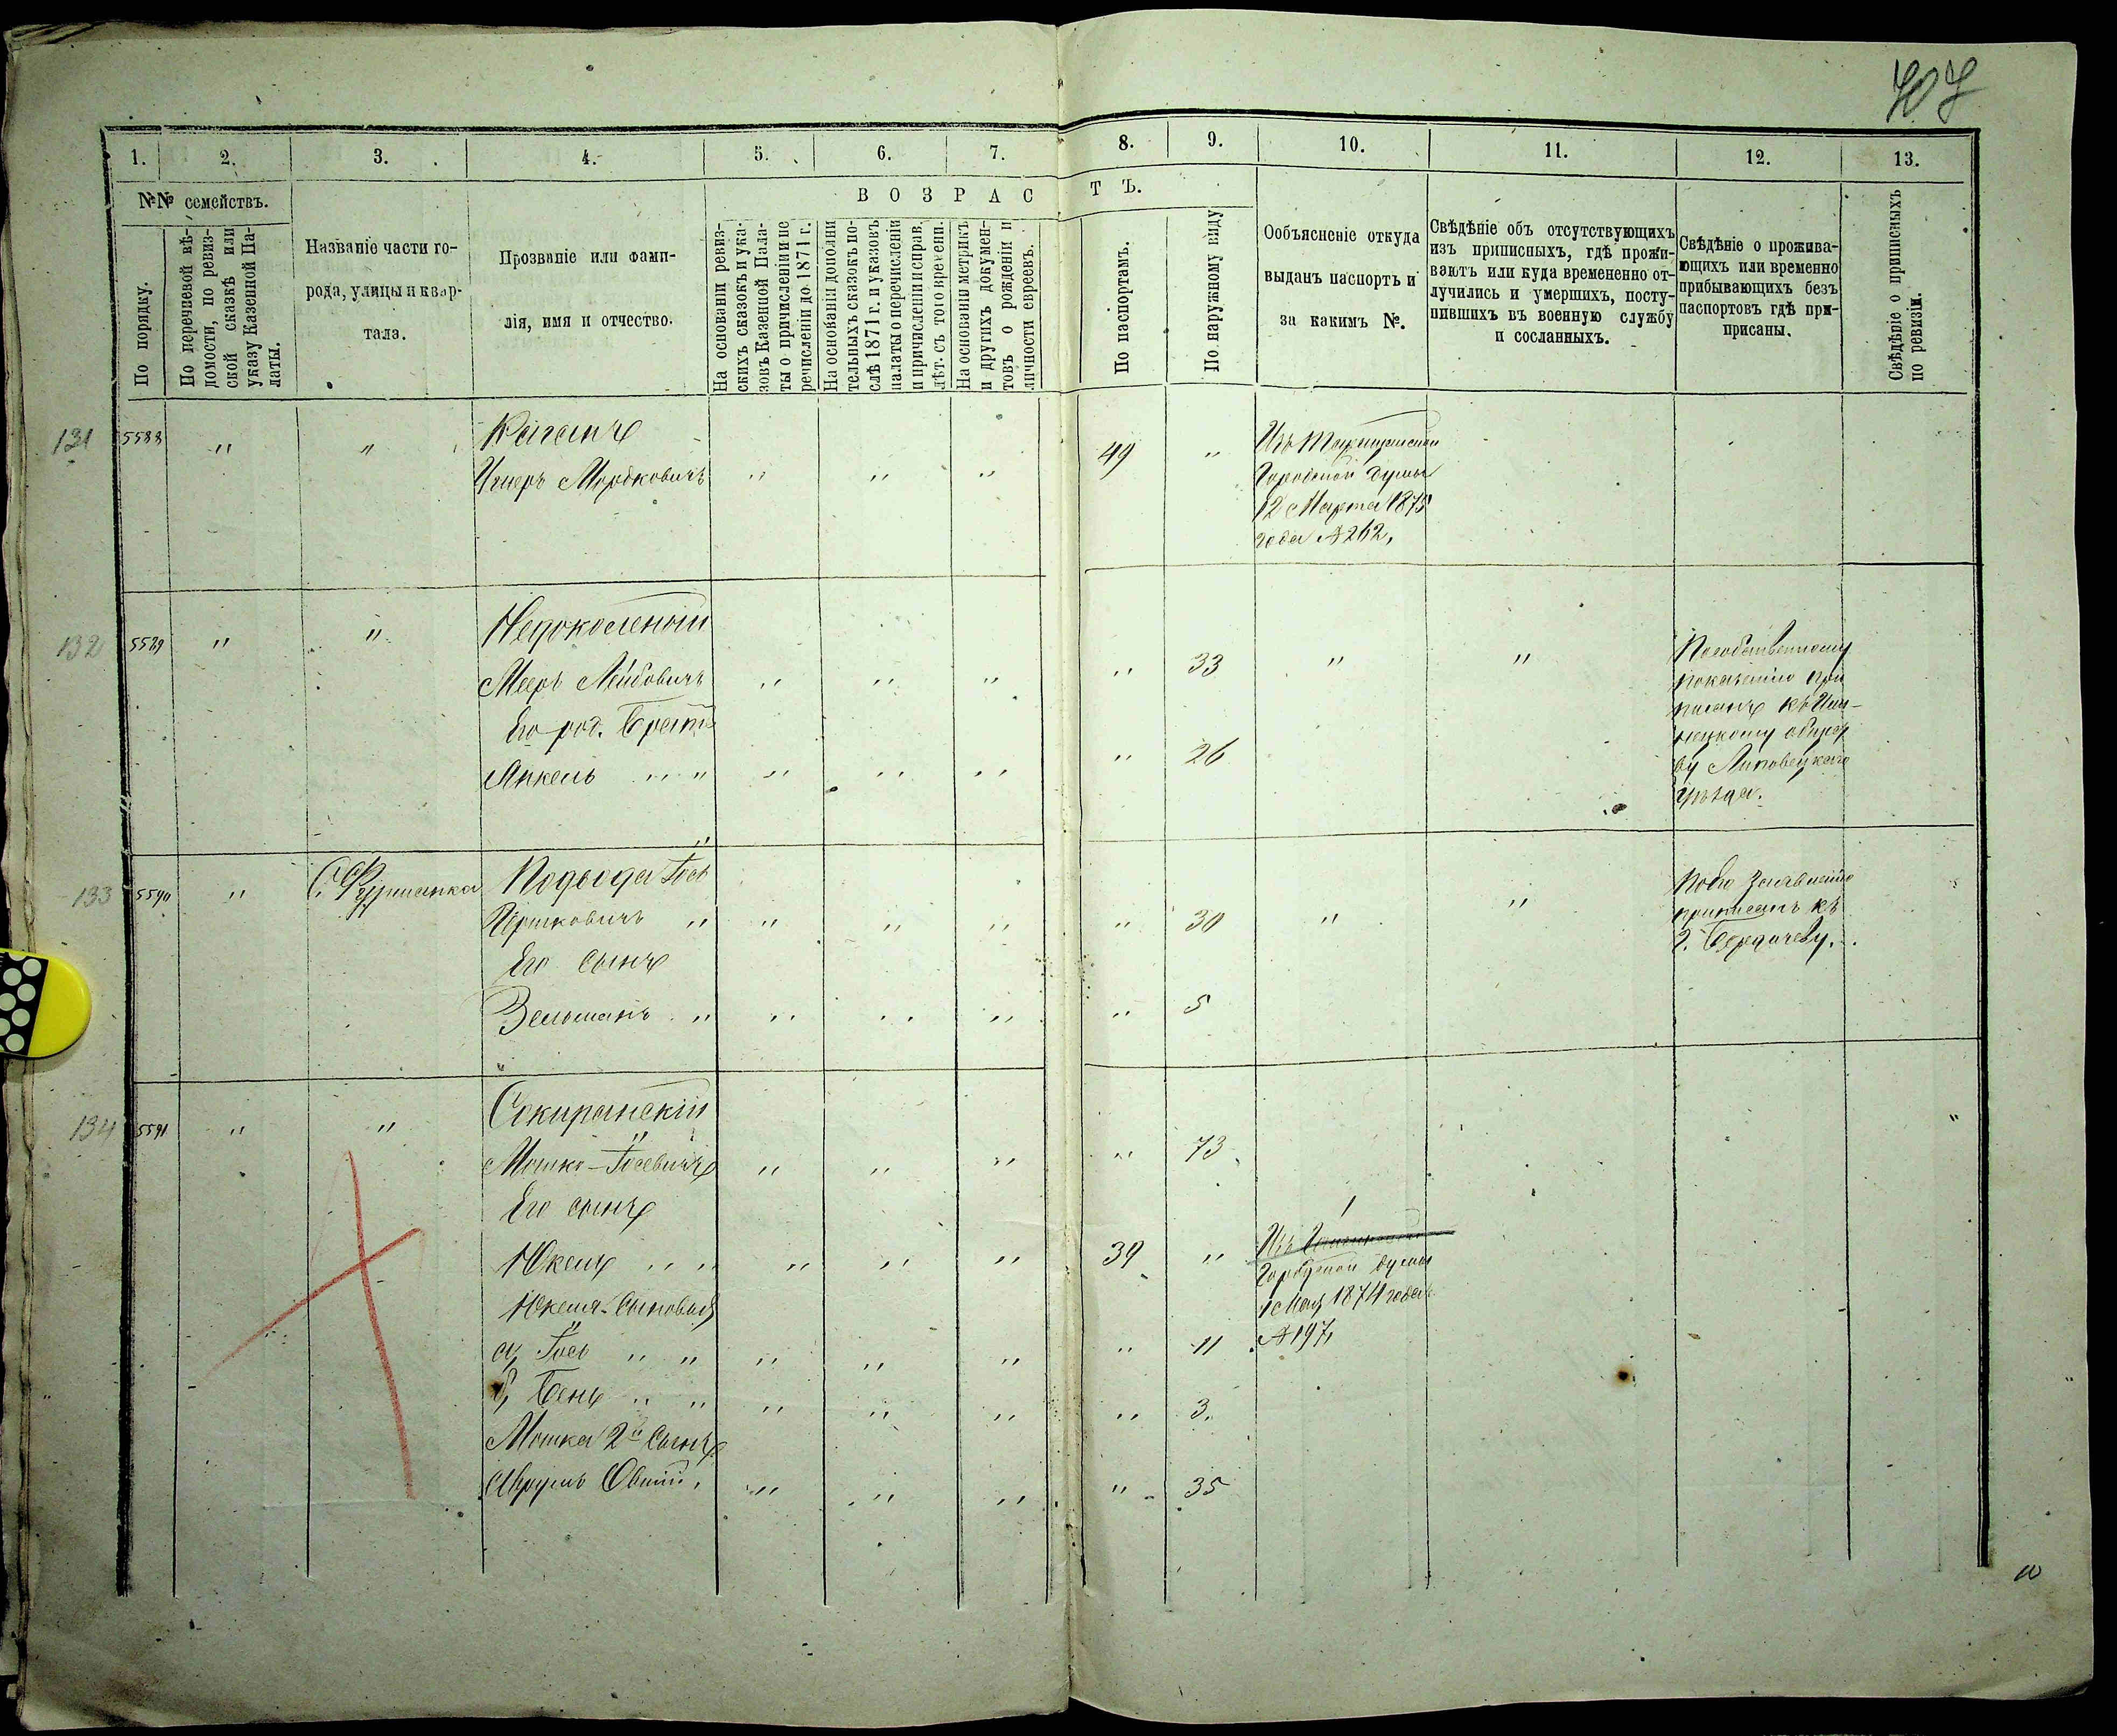 707
1. 2. 3. 4. 5. 6. 7. 8. 9. 10. 11. 12. 13.
№№ семействъ.
По порядку.
По перечневой вѣ-
домости, по ревиз-
ской сказкѣ или
указу Казенной Па-
латы.
Названіе части го-
рода, улицы и квар-
тала.
Прозваніе или фами-
лія, имя и отчество.
ВОЗРАСТЪ.
На основаніи ревиз-
скихъ сказокъ и ука-
зовъ Казенной Пала-
ты о причисленіи и пе
речисленіи до 1871 г.
На основаніи дополни
тельныхъ сказокъ по-
слѣ 1871 г. и указовъ
палаты о перечисленіи
и причисленіи и справ.
лѣт. съ того времени.
На основаніи метрикъ
и другихъ докумен-
товъ о рожденіи и
личности евреевъ.
По паспортамъ.
По наружному виду
Ообъясненіе откуда
выданъ паспортъ и
за какимъ №.
Свѣдѣніе объ отсутствующихъ
изъ приписныхъ, гдѣ прожи-
ваютъ или куда временно от-
лучились и умершихъ, посту-
пившихъ въ военную службу
и сосланныхъ.
Свѣдѣніе о прожива-
ющихъ или временно
прибывающихъ безъ
паспортовъ гдѣ при-
присаны.
Свѣдѣніе о приписныхъ
по ревизіи.
131 5588 " " Каганъ
Мордковичъ " " " 49 "
Городской Думы
12 Марта 1875
года №262,
132 5589 " "
Мееръ Лейбовичъ " " " " 33 " "
Его род. Братъ
Янкель " " " " " " 26
По собственному
показанію при
писанъ къ
Липовецкаго
уѣзда.
133 5590 " Іось
Гершковичъ " " " " " 30 " "
Его сынъ
Зельманъ " " " " " 5
По его заявленію
приписанъ къ
г. Бердичеву.
134 5591 " " Сокиранскій
Мошко-Іосевичъ " " " " 73
Его сынъ
" " " " " 39 "
Сыновья
а, Іось " " " " " " 11
б, Бень " " " " " " 3.
Мошка 2й Сынъ
" " " " 35
Изъ
Городской думы
1874 года
№197,